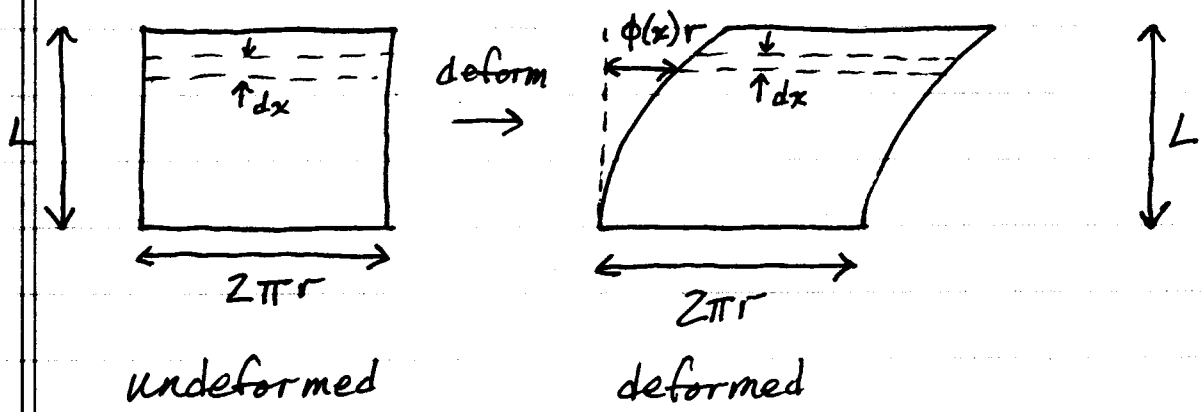 ϕ(x)r
deform
dx
dx
L
L
2πr
2πr
undeformed
deformed